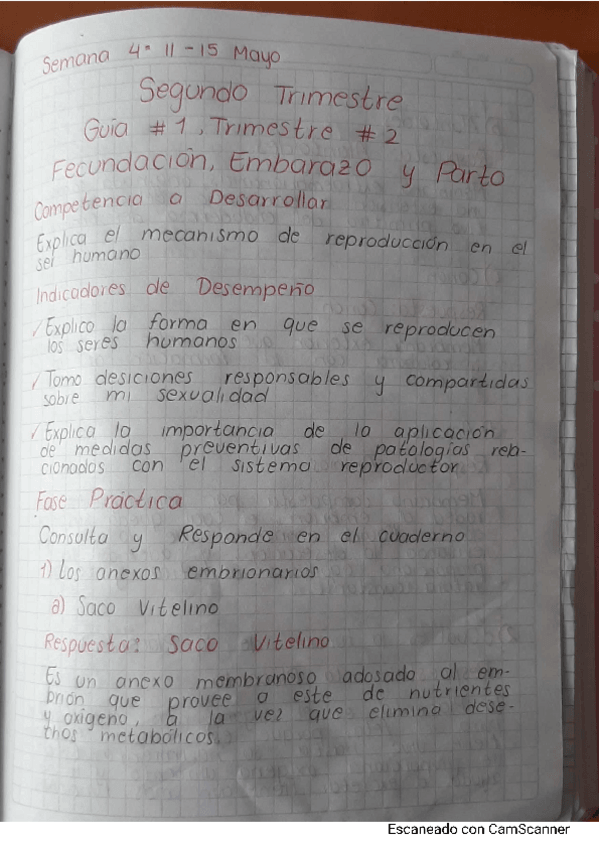 Semana 4: 11 - 15 Mayo
Segundo Trimestre
Guía # 1, Trimestre # 2
Fecundación, Embarazo y Parto
Competencia a Desarrollar
Explica el mecanismo de reproducción en el
ser humano
Indicadores de Desempeño
✓ Explico la forma en que se reproducen
los seres humanos
✓ Tomo desiciones responsables y compartidas
sobre mi sexualidad
✓ Explica la importancia de la aplicación
de medidas preventivas de patologías rela-
cionados con el sistema reproductor
Fase Práctica
Consulta y Responde en el cuaderno
1) Los anexos embrionarios
a) Saco Vitelino
Respuesta: Saco Vitelino
Es un anexo membranoso adosado al em-
brión que provee a este de nutrientes
y oxígeno, a la vez que elimina dese-
chos metabólicos.
Escaneado con CamScanner